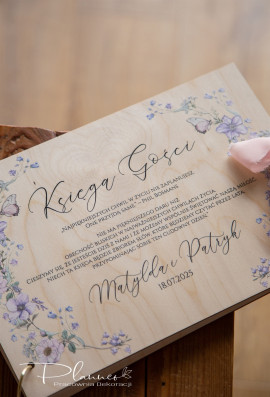 Księga Gości
„NAJPIĘKNIEJSZYCH CHWIL W ŻYCIU NIE ZAPLANUJESZ.
ONE PRZYJDĄ SAME.” – PHIL BOSMANS
NIE MA PIĘKNIEJSZEGO DARU NIŻ
OBECNOŚĆ BLISKICH W NAJWAŻNIEJSZYCH CHWILACH ŻYCIA.
CIESZYMY SIĘ, ŻE JESTEŚCIE DZIŚ Z NAMI I ŻE MOŻEMY WSPÓLNIE ŚWIĘTOWAĆ NASZĄ MIŁOŚĆ.
NIECH TA KSIĘGA BĘDZIE ZBIOREM SŁÓW, KTÓRE BĘDZIEMY CZYTAĆ PRZEZ LATA,
PRZYPOMINAJĄC SOBIE TEN CUDOWNY DZIEŃ.
Matylda i Patryk
18.07.2025
Planner
Pracownia Dekoracji